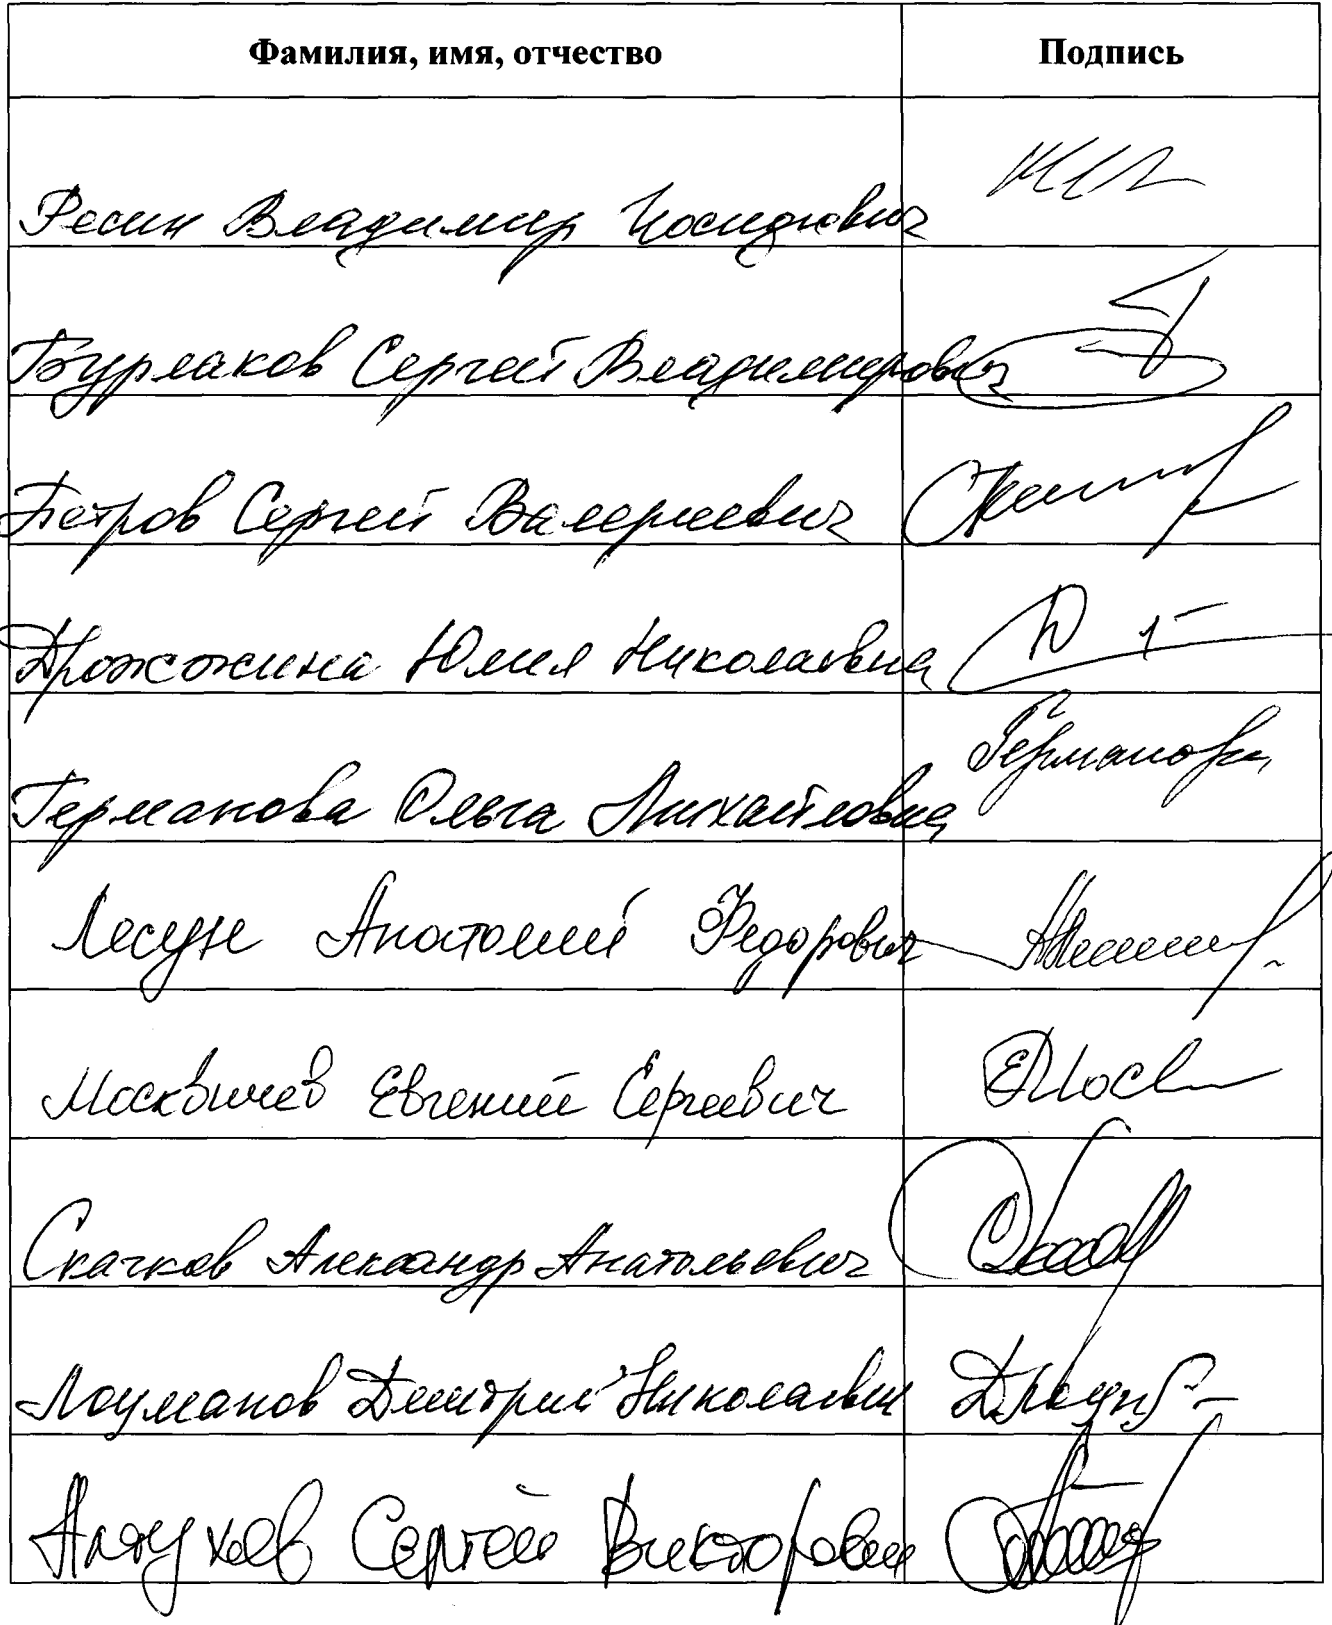 Фамилия, имя, отчество Подпись
Ресин Владимир Иосифович
Бурлаков Сергей Владимирович
Петров Сергей Валериевич
Дрожжина Юлия Николаевна
Германова Ольга Михайловна Германова
Лесун Анатолий Федорович
Москвичев Евгений Сергеевич ЕМоск
Скачков Александр Анатольевич
Лоцманов Дмитрий Николаевич
Алтухов Сергей Викторович